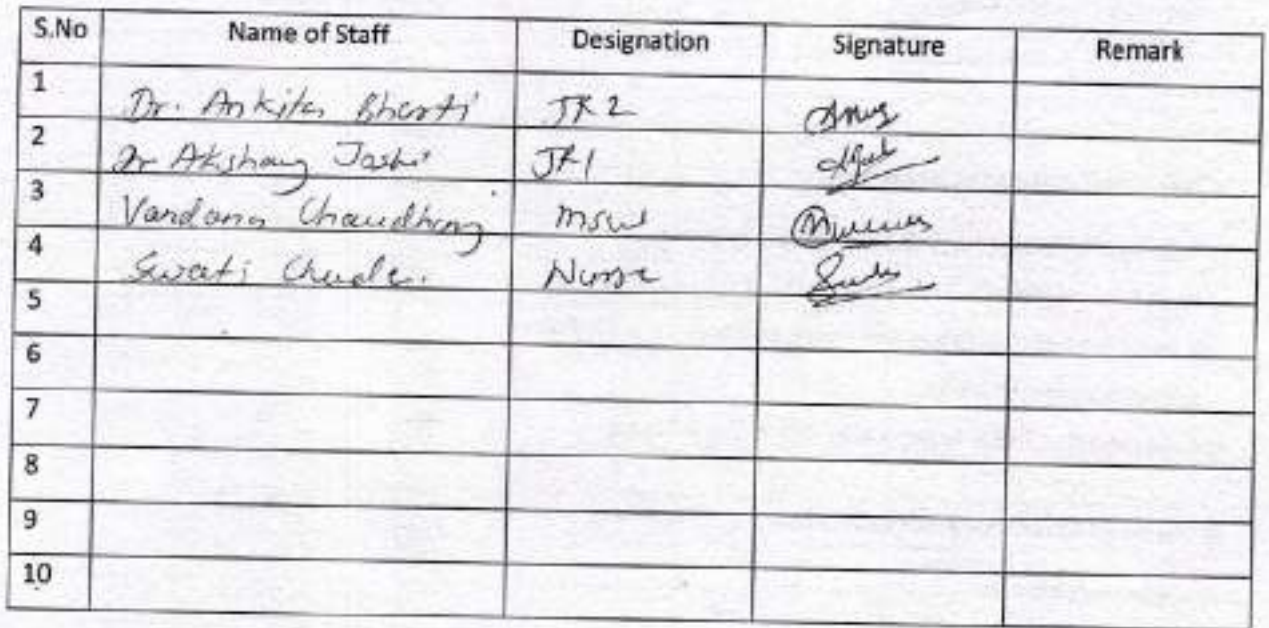 S.No Name of Staff Designation Signature Remark
1 Dr. Ankita Bharti JR2
2 Dr Akshay Joshi JR1
3 Vandana Chaudhary MSW
4 Swati Nurse
5
6
7
8
9
10